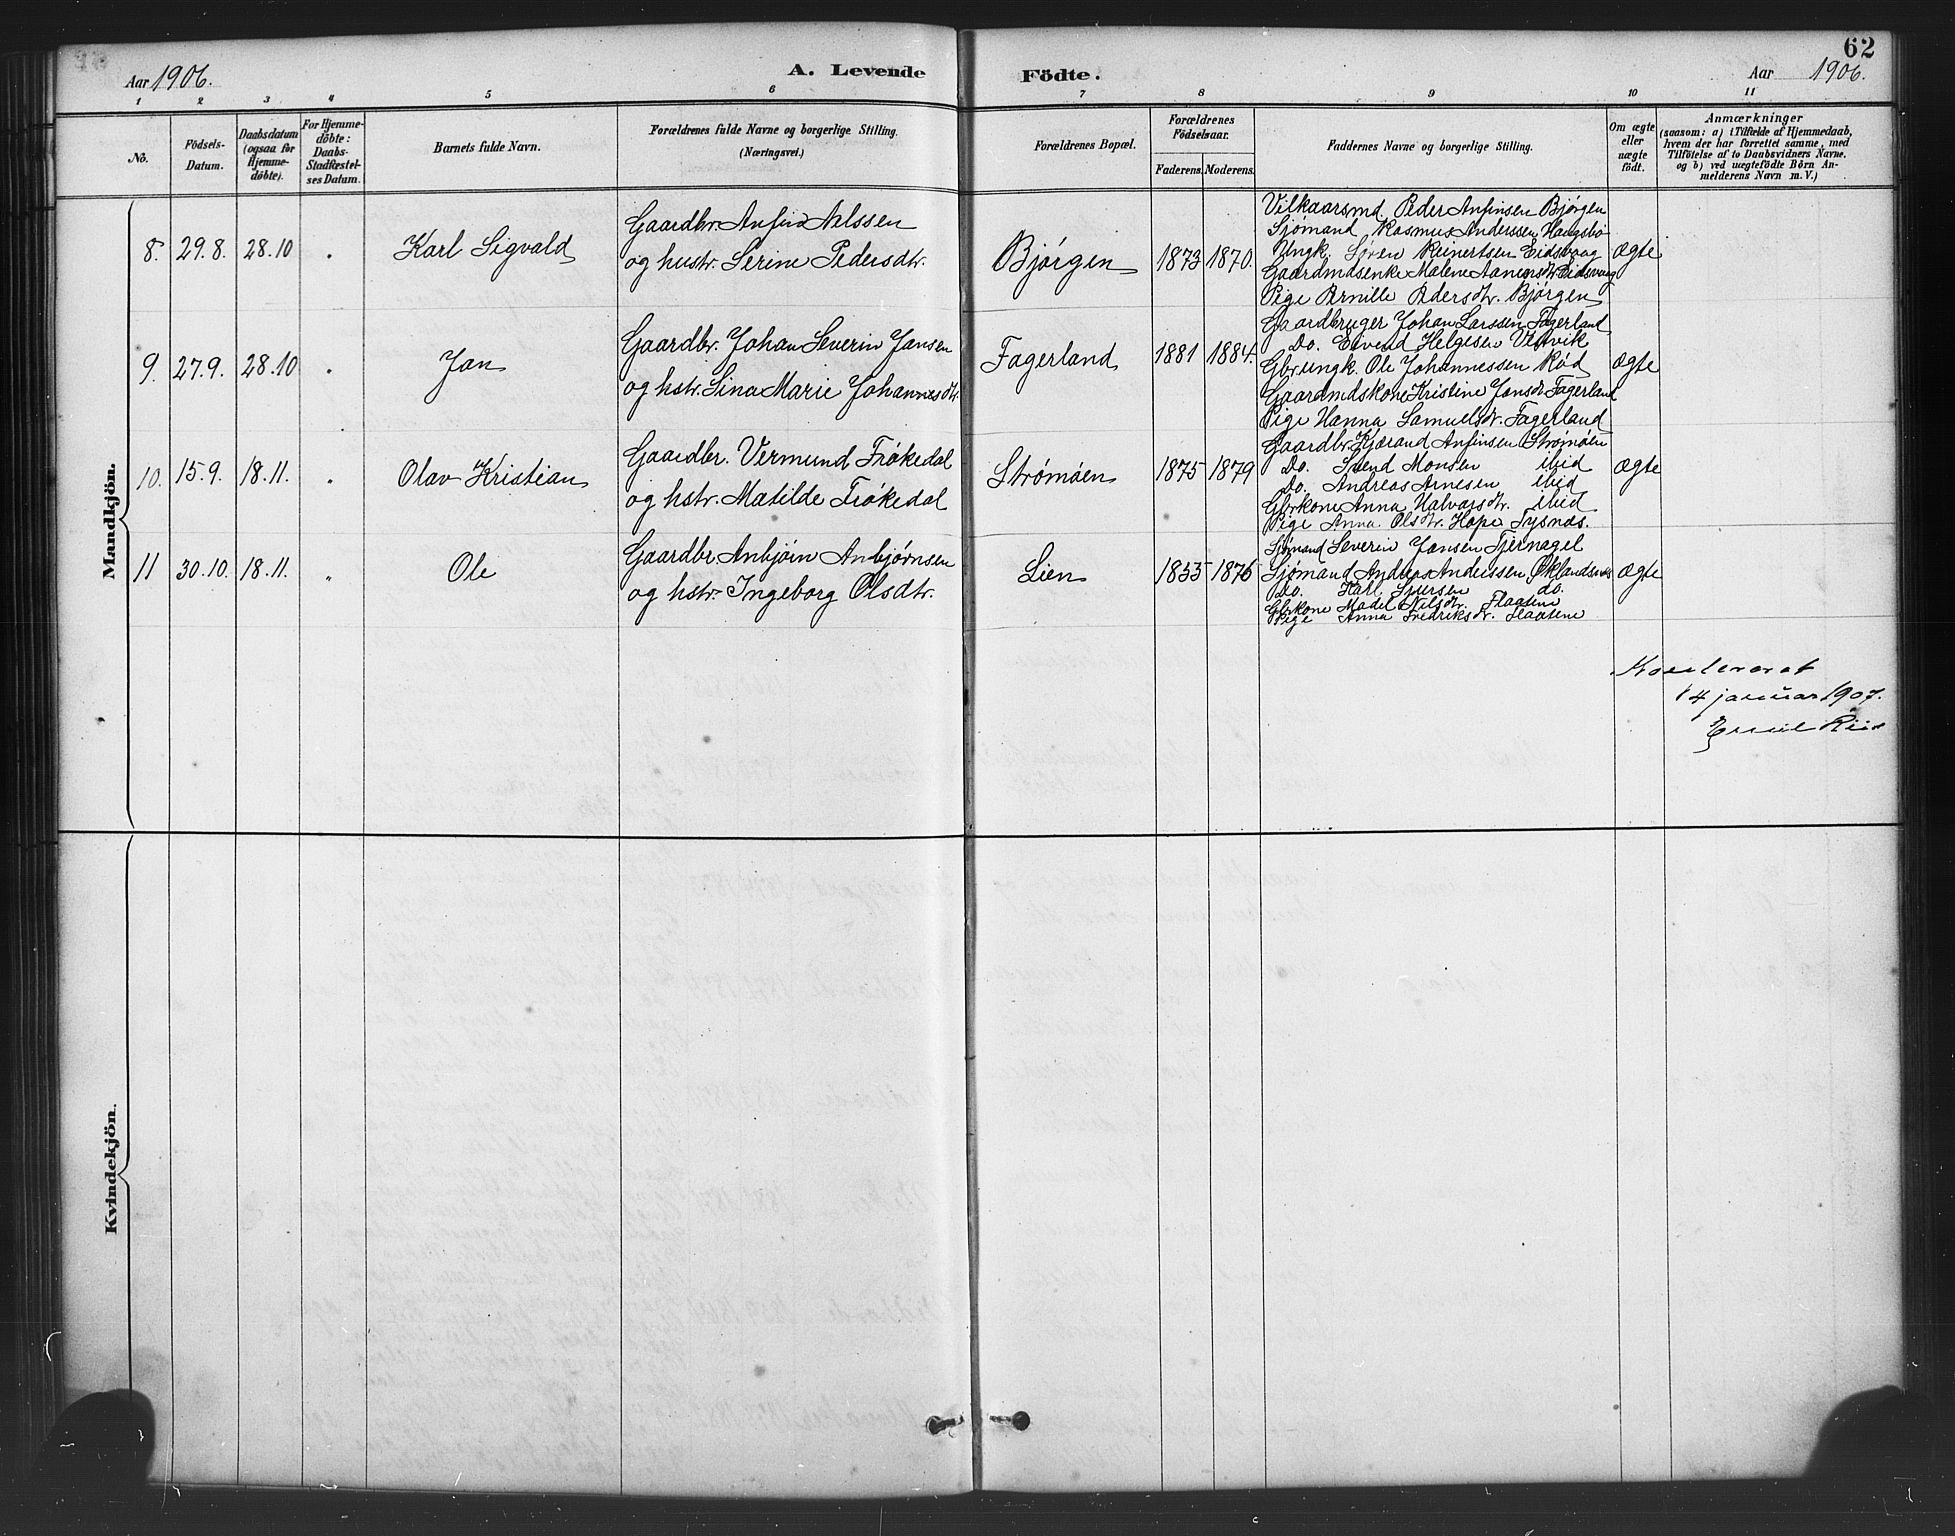 62
Aar 1906.
A. Levende Födte.
Aar 1906.
1 2 3 4 5 6 7 8 9 10 11
No.
Födsels-
Datum.
Daabsdatum
(ogsaa for
Hjemme-
döbte).
For Hjemme-
döbte:
Daabs-
Stadfæstel-
ses Datum.
Barnets fulde Navn.
Forældrenes fulde Navne og borgerlige Stilling.
(Næringsvei.)
Forældrenes Bopæl.
Forældrenes
Födselsaar.
Faderens. Moderens.
Faddernes Navne og borgerlige Stilling.
Om ægte
eller
uægte
födt.
Anmærkninger
(saasom: a) i Tilfælde af Hjemmedaab,
hvem der har forrettet samme, med
Tilföielse af to Daabsvidners Navne,
og b) ved uægtefödte Börn An-
melderens Navn m. V.)
Mandkjön.
8. 29.8. 28.10 Karl Sigvald
Gaardbr. Anfin Nilssen
og hustr. Serine Pedersdtr.
Bjørgen 1873 1870.
Vilkaarsmd. Peder Anfinsen Bjørgen
Sjømand Rasmus Anderssen Haugsbø
Ungk. Søren Reinertsen Eidsvaag
Gaardmdsenke Malene Aanensdtr. Eidsvaag
Pige Pernille Pedersdtr. Bjørgen
ægte
9. 27.9. 28.10 Jan
Gaardbr. Johan Severin Jansen
og hstr. Sina Marie Johannesdtr.
Fagerland 1881 1884.
Gaardbruger Johan Larssen Fagerland
Do. Eivend Helgesen Vestvik
Gbr. ungk. Ole Johannessen Rød
Gaardmdskone Kristine Jansdtr. Fagerland
Pige Hanna Samuelsdtr. Fagerland
ægte
10. 15.9. 18.11. Olav Kristian
Gaardbr. Vermund Frøkedal
og hstr. Matilde Frøkedal
Strømøen 1875 1879
Gaardbr. Kjærand Anfinsen Strømøen
Do. Svend Monsen ibid
Do. Andreas Arnesen ibid
Gbrkone Anna Halvorsdtr. ibid
Pige Anna Olsdtr. Hope Tysnæs.
ægte
11 30.10. 18.11. Ole
Gaardbr. Anbjøin Anbjørnsen
og hstr. Ingeborg Olsdtr.
Lien 1855 1876
Sjømand Severin Jansen Tjernagel
Sjømand Andreas Anderssen Øklandsnes
Do. Karl Sjursen do.
Gbrkone Madel Nilsdtr. Flaatene
Pige Anna Fredriksdtr. Flaatene
ægte
14 januar 1907.
Kvindekjön.